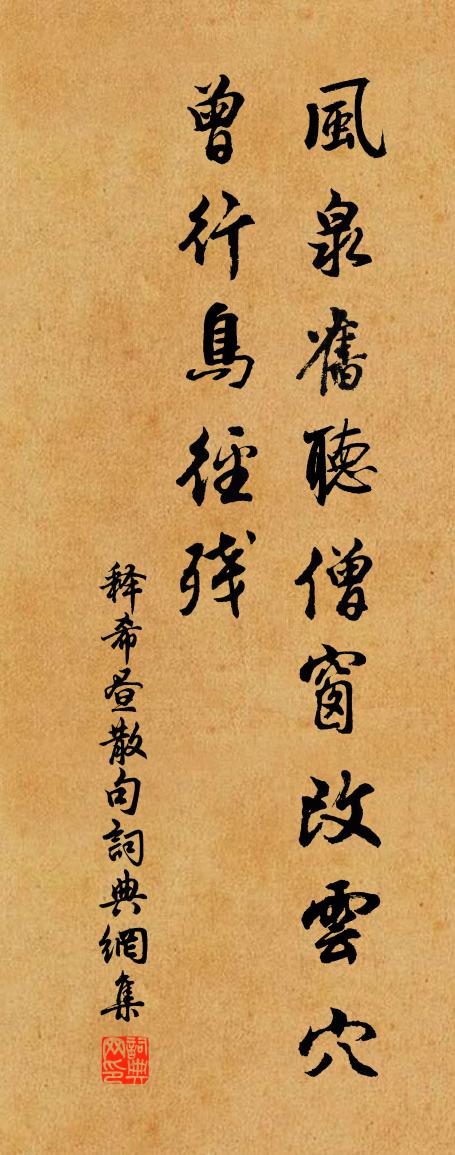 風泉舊聽僧窗改雲穴
曾行鳥徑残
释希昼散句詞典網集
詞典网印